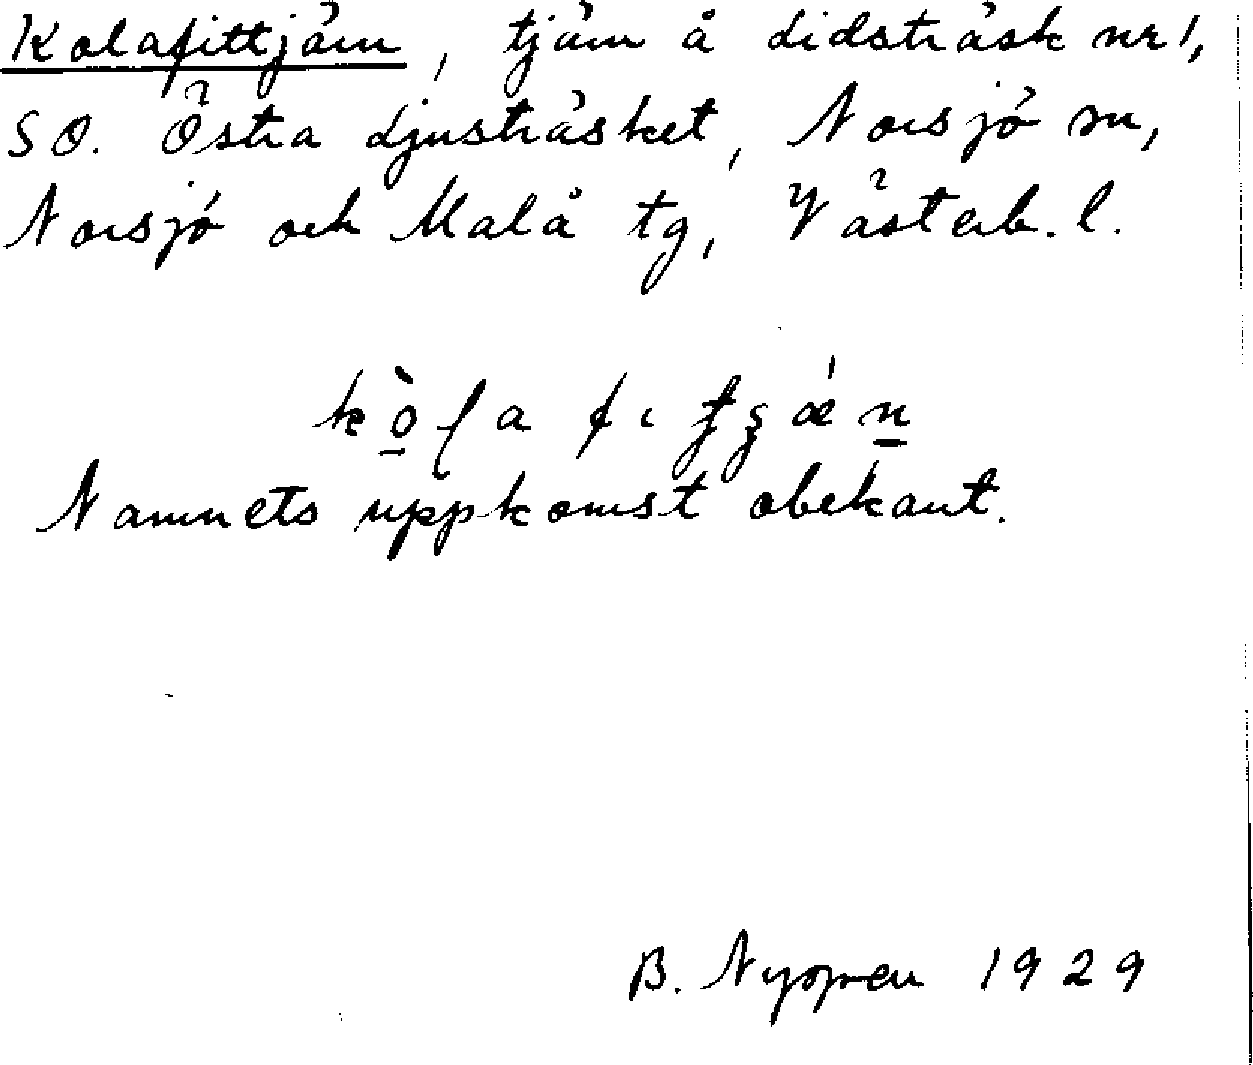 Kolafittjärn, tjärn å Lidsträsk nr 1,
SO. Östra Ljusträsket, Norsjö sn,
Norsjö och Malå tg, Västerb. l.
Namnets uppkomst obekant.
B. Nyman 1929